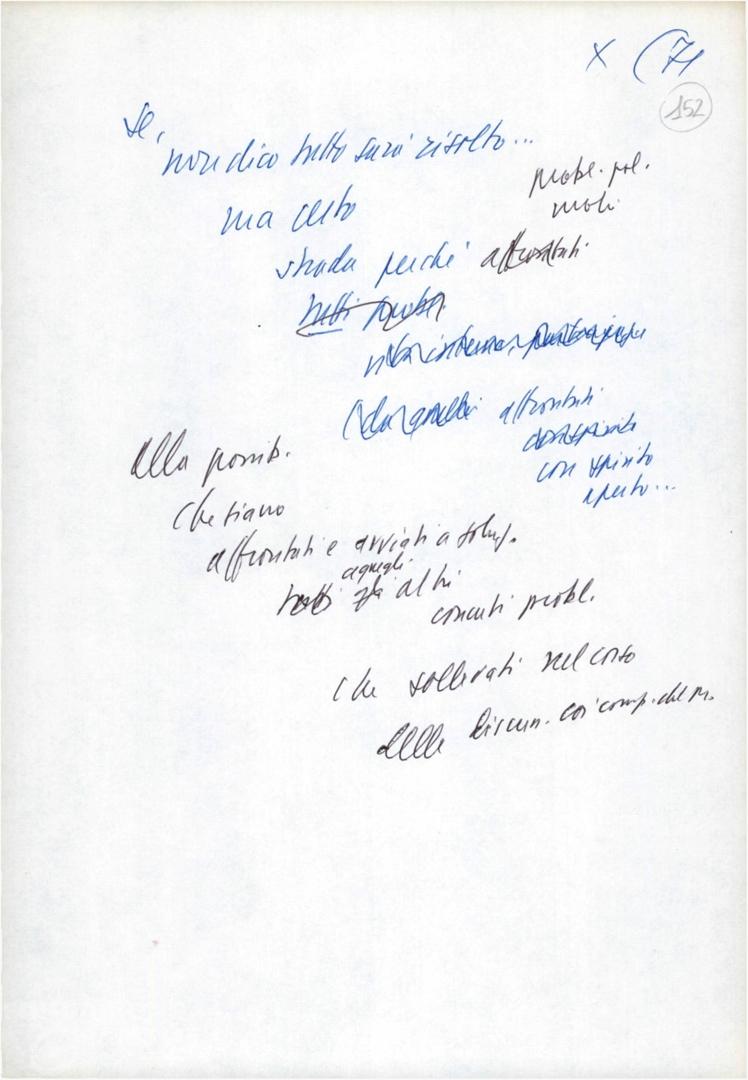 x (71
152
se,
non dico tutto sarà risolto...
ma certo
probl. pol.
moti
strada perché affrontati
tutti probl.
vita interna, partecipaz.
affrontati
con spirito
aperto...
alla possib.
che siano
affrontati e avviati a soluz.
a quegli
tutti gli altri
concreti probl.
che sollevati nel corso
delle discuss. coi comp. del M.